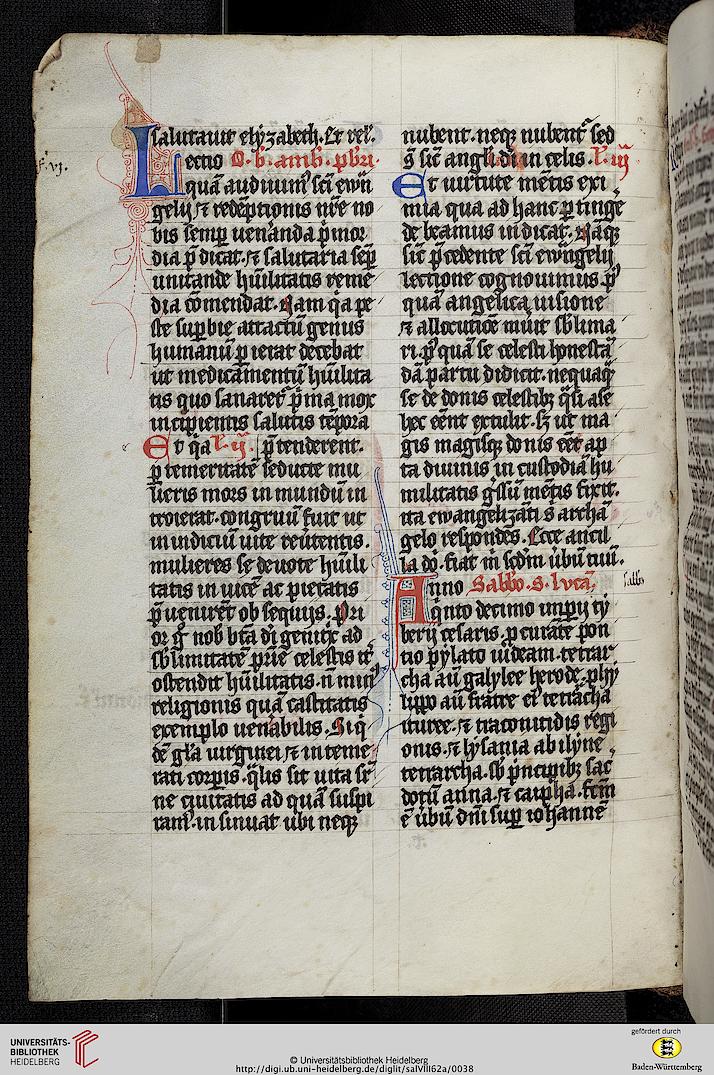 f. vj.
salutauit elyzabeth. Et rel.
Lectio O. b. amb. pbri.
quā audiuimꝰ scī ewā
gelij ⁊ redēptionis nr̄e no
bis semꝑ uenanda p̄mor
dia p̄dicat. ⁊ salutaria seꝑ
unitande hūilitatis reme
dia cōmendat. Nam q̇a pe
ste suꝑbie attactū genus
humanū ꝑierat decebat
ut medicamentū hūilita
tis quo sanaretᷣ p̄ma mox
incipientis salutis tēpora
Et q̇a L. ij. p̄tenderent.
ꝑ temeritatē seducte mu
lieris mors in mundū in
troierat. congruū fuit ut
in indiciū uite reūtentis.
mulieres se deuote hūili
tatis in uicē ac pietatis
p̄uenirēt obsequijs. Pri
or gͦ nob̄ btā di genitͥx ad
sb̄limitatē prīe celestis itͬ
ostendit hūilitatis. n̄ minꝰ
religionis quā castitatis
exemplo uenābilis. Si q̇
dē gl̄a uirginei ⁊ inteme
rati corꝑis. q̄lis sit uita suꝑ
ne ciuitatis ad quā suspi
ramꝰ. in sinuat ubi neqꝫ
nubent. neqꝫ nubentᷣ sed
s̄ sic̄ angli di in celis. L. iij
Et uirtute mētis exi
mia qua ad hanc ꝑtingē
debeamus indicat. Nāqꝫ
sic̄ p̄cedente scī ewāgelij
lectione cognouimus. pꝰ
quā angelica uisione
⁊ allocutiōe mūit sb̄lima
ri. pꝰ quā se celesti honestā
dā partu didicit. nequaq̄
se de donis celestibꝫ q̇si a se
hec eēnt extulit. sꝫ ut ma
gis magisqꝫ donis eēt ap
ta diuinis in custodiā hu
militatis gͥssū mētis fixit.
ita ewangelizāti s̄ archā
gelo respōdes. Ecce ancil
la dō. fiat m̄ scdm ūbū tuū.
Anno Sabb̄o. s. lucā.
sabb̄o
q̇nto decimo imꝑij ty
berij cesaris. ꝓcurāte pon
tio pylato iudeam. tetrar
cha aū galylee herode. phy
lippo aū fratre eiꝰ tetrarcha
ituree. ⁊ traconitidis regi
onis. ⁊ lysania abilyne
tetrarcha. sb̄ p̄ncipibꝫ sac̄
dotū anna. ⁊ cayp̱ha. fc̄m
ē ūbū dn̄i suꝑ iohannē
UNIVERSITÄTS-
BIBLIOTHEK
HEIDELBERG
© Universitätsbibliothek Heidelberg
http://digi.ub.uni-heidelberg.de/diglit/salVIII62a/0038
gefördert durch
Baden-Württemberg